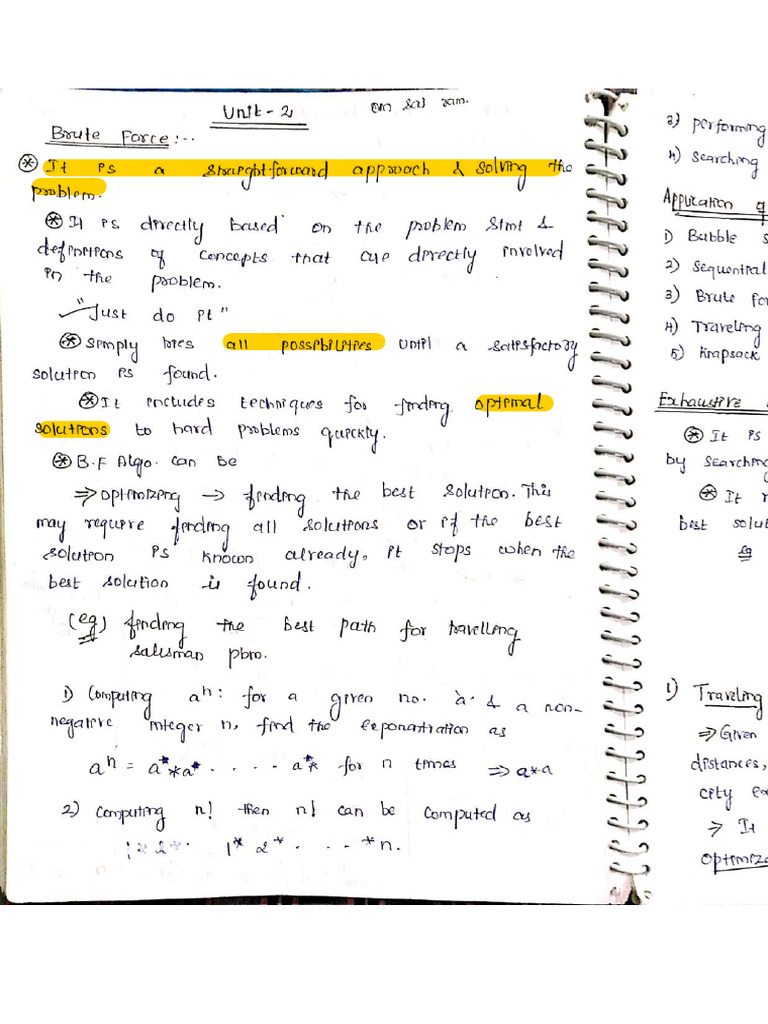 Unit - 2
om sai ram.
Brute Force:-.
⊛ It is a straightforward approach & solving the
problem.
⊛ It is directly based on the problem stmt &
definitions of concepts that are directly involved
in the problem.
"Just do it"
⊛ Simply tries all possibilities until a satisfactory
solution is found.
⊛ It includes techniques for finding optimal
solutions to hard problems quickly.
⊛ B.F Algo. can be
⇒ optimizing → finding the best solution. This
may require finding all solutions or if the best
solution is known already, it stops when the
best solution is found.
(eg) finding the best path for travelling
salesman pbm.
1) Computing aⁿ: for a given no. 'a' & a non-
negative integer n, find the exponantiation as
aⁿ = a**a* . . . . a* for n times ⇒ a*a
2) Computing n! then n! can be computed as
1* 2* . . . - *n.
3) performing
4) Searching
Application
1) Bubble
2) Sequential
3) Brute
4) Traveling
5) Knapsack
Exhaustive
⊛ It is
by searching
⊛ It
best
eg
1) Traveling
⇒ Given
distances,
city
⇒ It